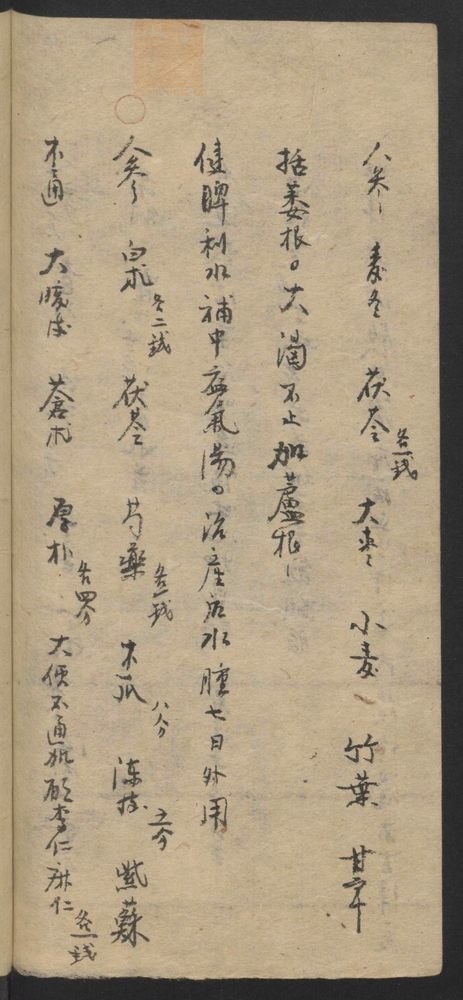 人參 麦冬 茯苓各一錢 大枣 小麦 竹葉 甘草
括萎根。大渴不止加蘆根
健脾利水補中益氣湯。治產后水腫七日外用
人參 白朮各二錢 茯苓 芍藥各一錢 木瓜八分 陳皮五分 紫蘇
木通 大腹皮 蒼朮 厚朴各四分 大便不通加郁李仁麻仁各一錢